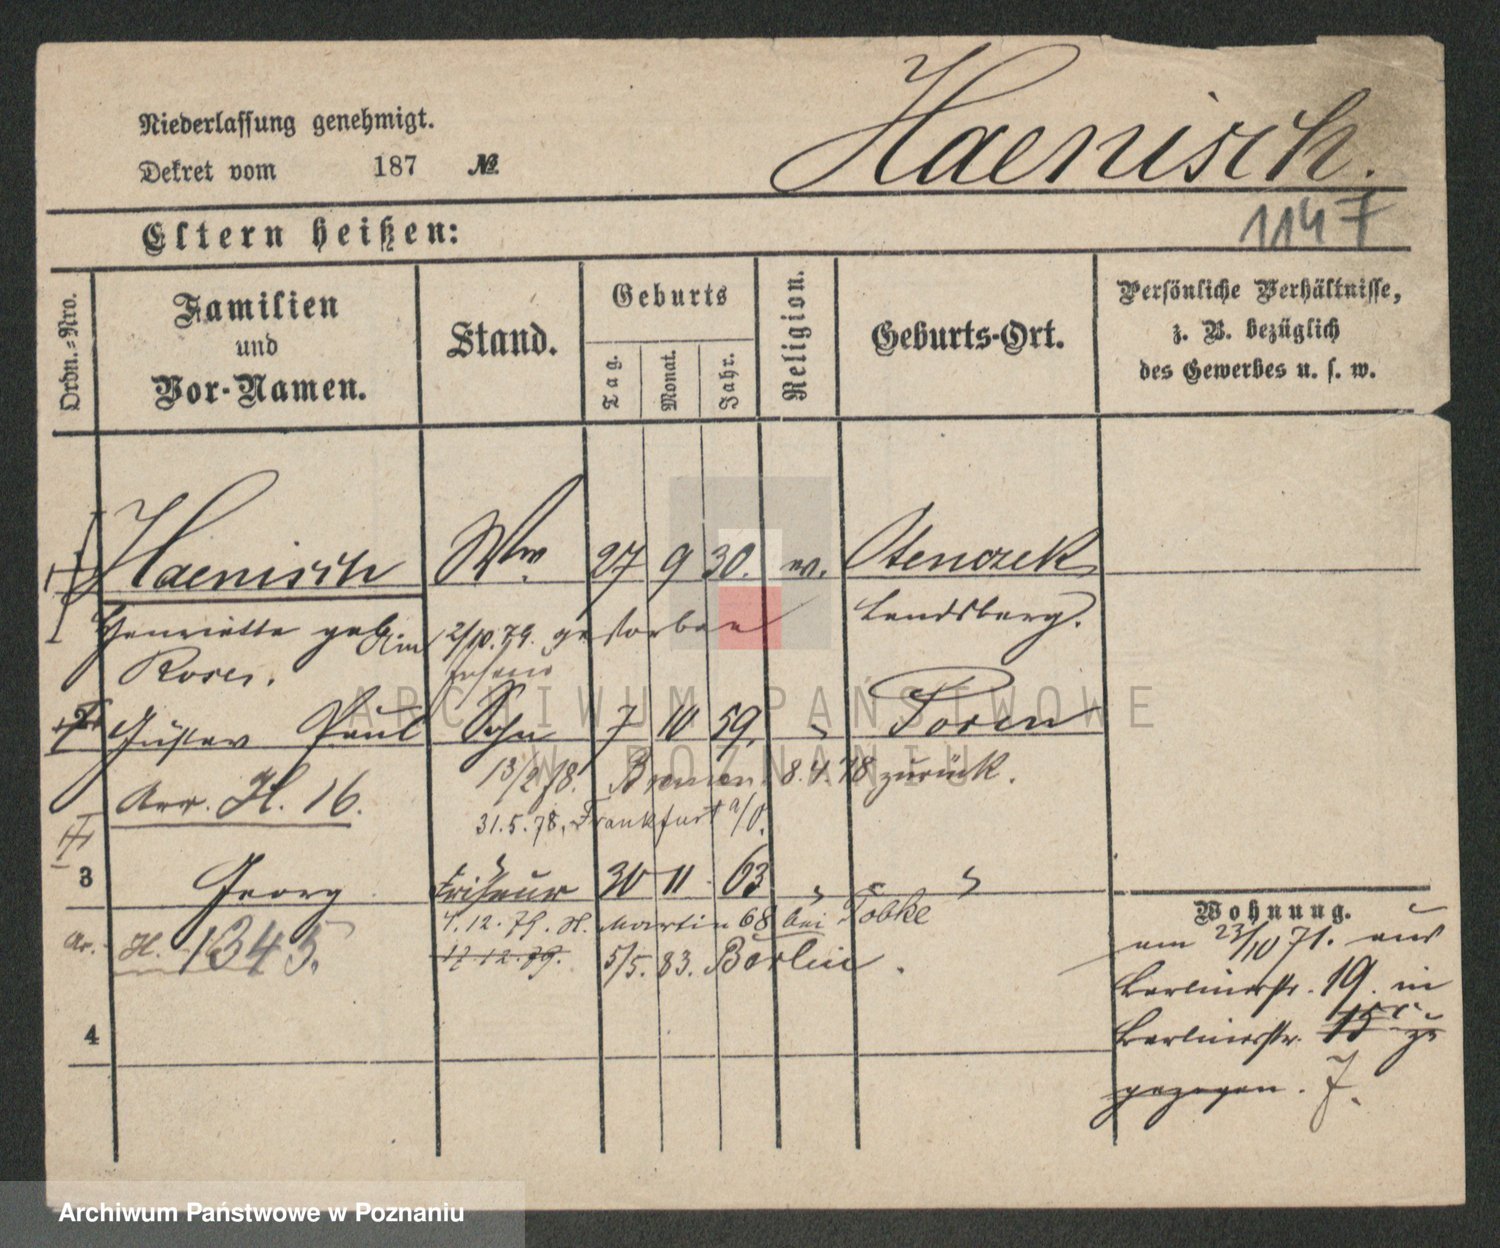 Haenisch.
Niederlassung genehmigt.
Dekret vom 187 №
1147
Eltern heißen:
Ordn.-Nro.
Familien und Vor-Namen.
Stand.
Geburts
Tag.
Monat.
Jahr.
Religion.
Geburts-Ort.
Persönliche Verhältnisse,
z. B. bezüglich
des Gewerbes u. s. w.
Haenisch Ww. 27 9 30. ev.
Henriette geb. 2/10.79. gestorben Landsberg.
Gustav Paul Sohn 7 10 59, " Posen
13/2 78. Bremen 8.4.78 zurück.
Arr. H. 16.
31.5.78. Frankfurt a/O.
3 Georg Friseur 30 11 63 " "
4.12.79. H. Martin 68 bei Tobke
Ar. H. 1343.
17 12.79. 5/5. 83. Berlin.
4
Wohnung.
am 23/10 71. aus
Berlinerstr. 19. in
Berlinerstr. 15
gezogen. 7.
ARCHIWUM PAŃSTWOWE
W POZNANIU
Archiwum Państwowe w Poznaniu